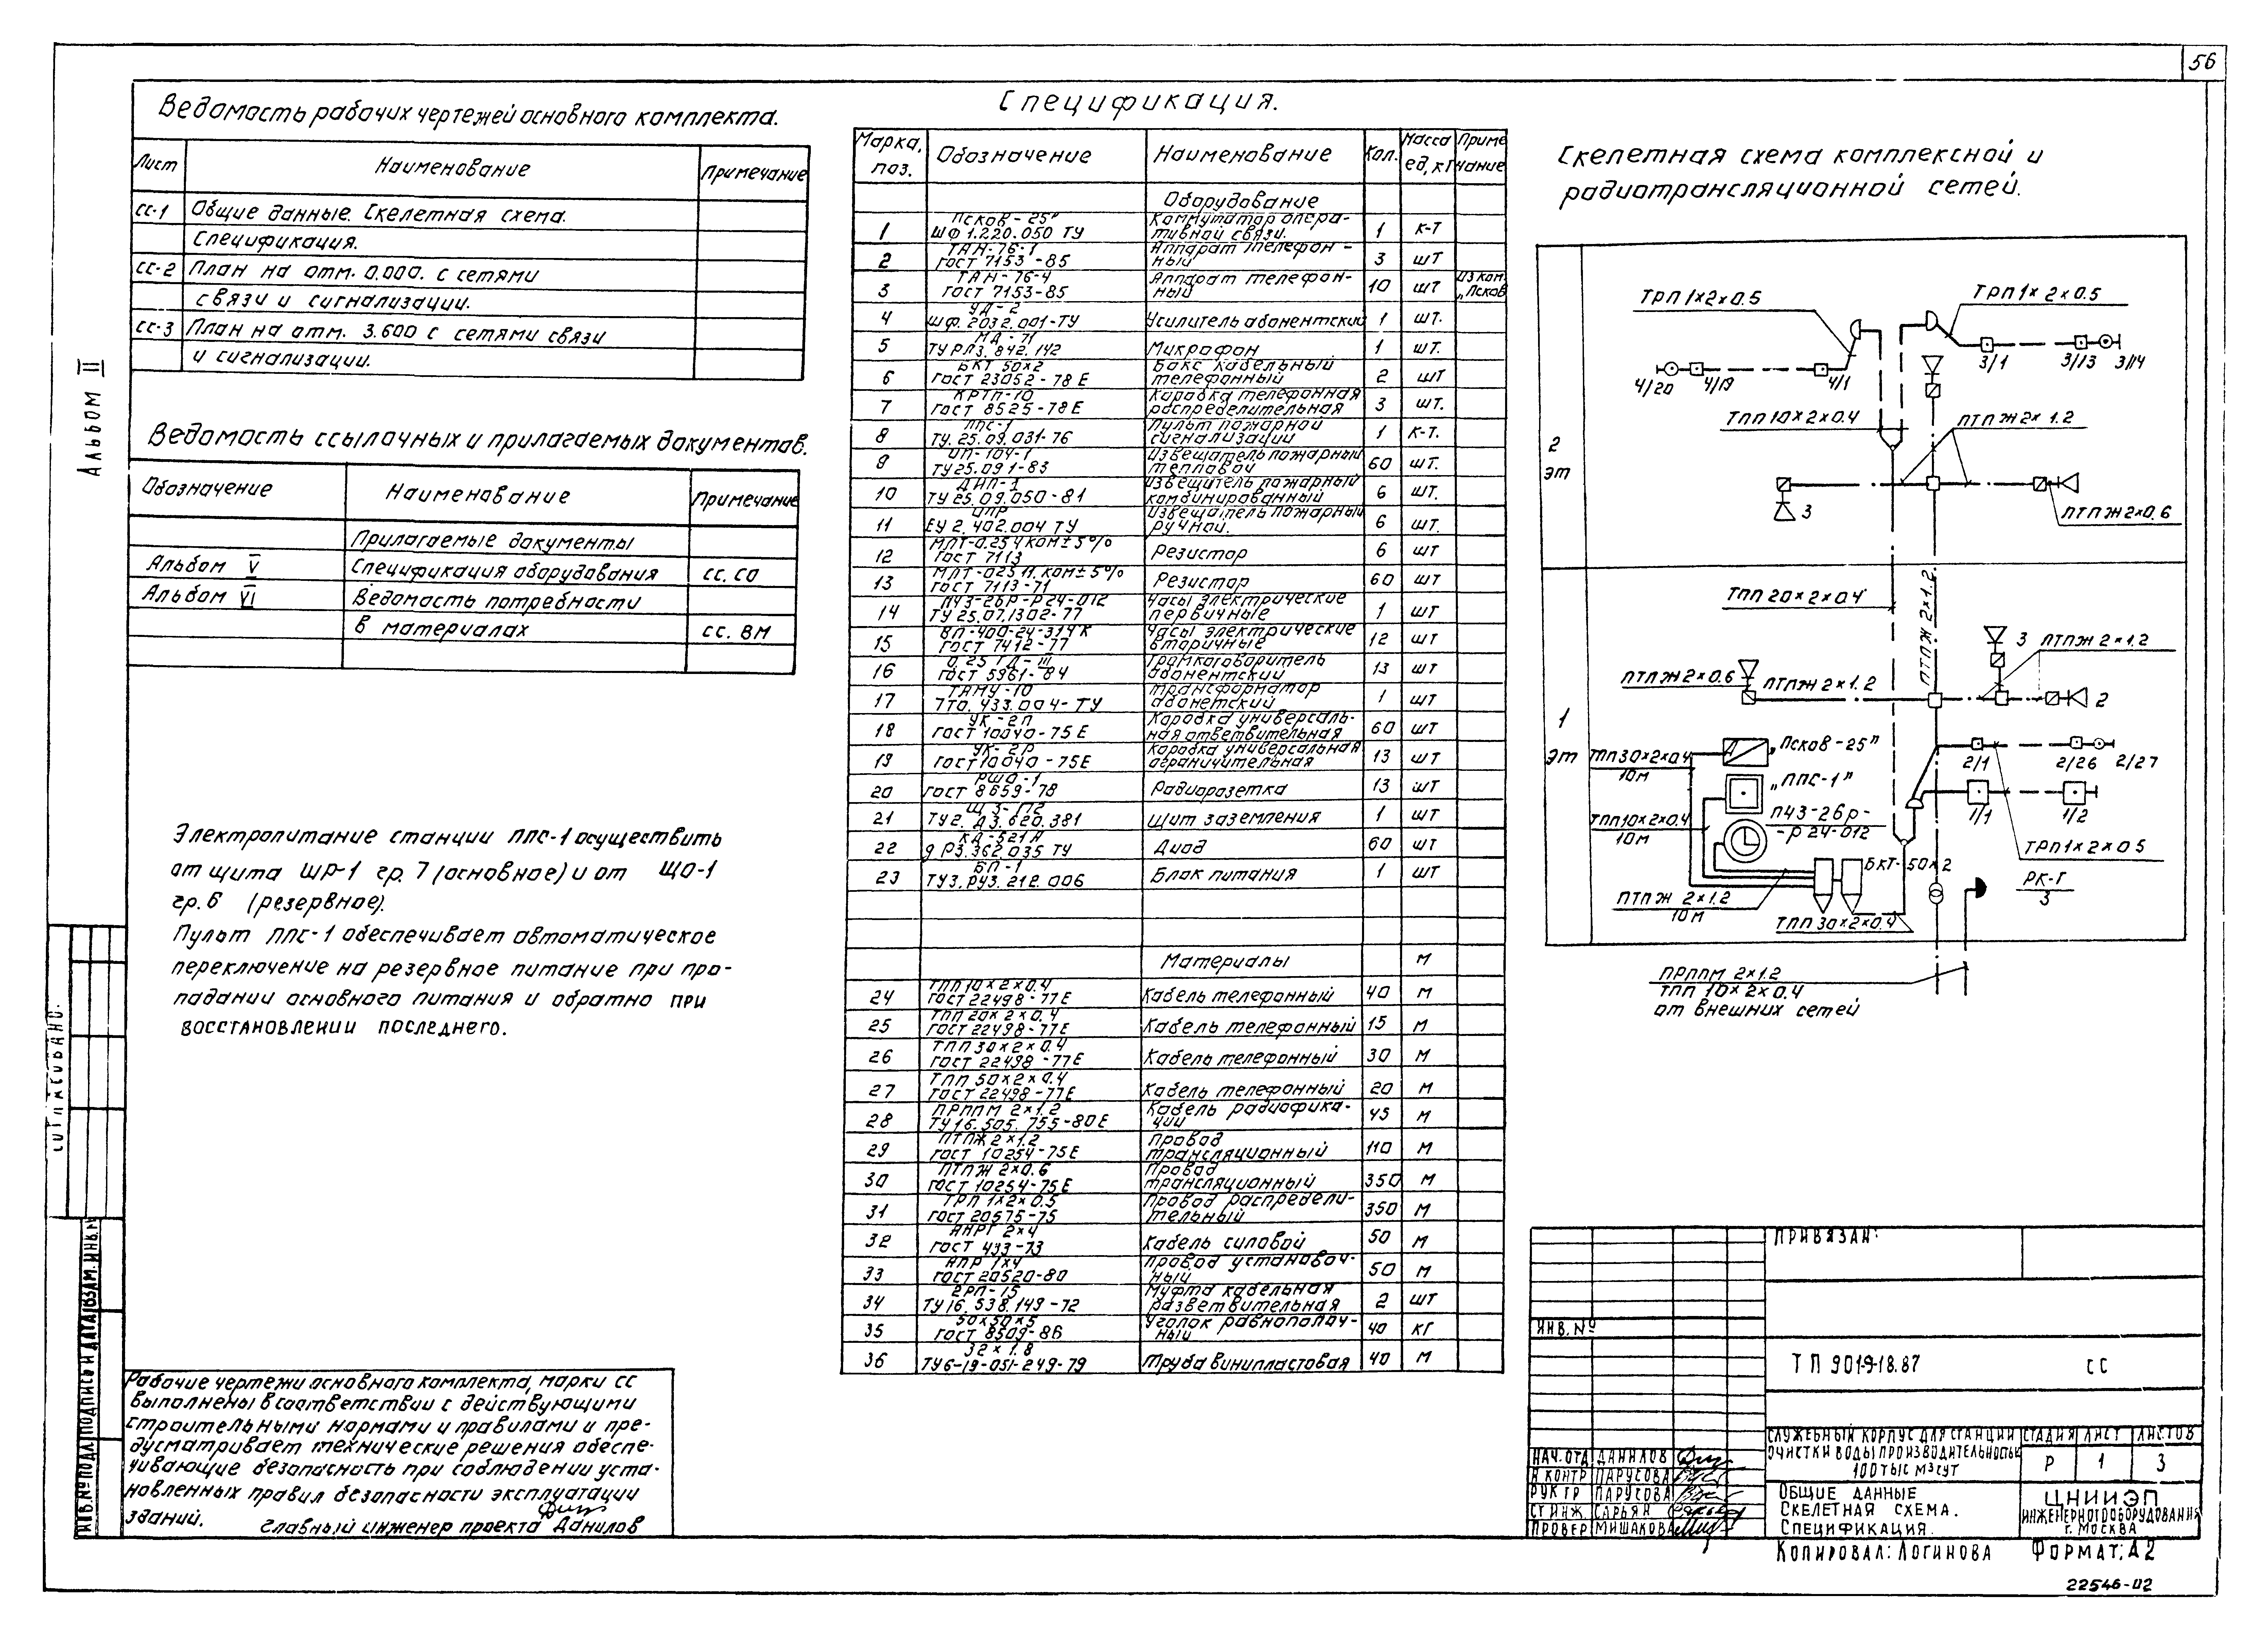 56
Альбом II
Ведомость рабочих чертежей основного комплекта.
Лист Наименование Примечание
СС-1 Общие данные. Скелетная схема.
Спецификация.
СС-2 План на отм. 0.000. с сетями
связи и сигнализации.
СС-3 План на отм. 3.600 с сетями связи
и сигнализации.
Ведомость ссылочных и прилагаемых документов.
Обозначение Наименование Примечание
Прилагаемые документы
Альбом V Спецификация оборудования СС.СО
Альбом VI Ведомость потребности
в материалах СС. ВМ
Электропитание станции ППС-1 осуществить
от щита ШР-1 гр. 7 (основное) и от ЩО-1
гр.6 (резервное).
Пульт ППС-1 обеспечивает автоматическое
переключение на резервное питание при про-
падании основного питания и обратно при
восстановлении последнего.
Рабочие чертежи основного комплекта, марки СС
выполнены в соответствии с действующими
строительными нормами и правилами и пре-
дусматривает технические решения обеспе-
чивающие безопасность при соблюдении уста-
новленных правил безопасности эксплуатации
зданий. Главный инженер проекта Данилов
Согласовано:
Инв.№ подл. Подпись и дата Взам. инв.№
Спецификация.
Марка, поз. Обозначение Наименование Кол. Масса ед, кг Примечание
Оборудование
1 Псков-25" ШФ 1.220.050 ТУ Коммутатор опера-тивной связи. 1 к-т
2 ТАН-76-1 ГОСТ 7153-85 Аппарат телефон-ный 3 шт
3 ТАН-76-4 ГОСТ 7153-85 Аппарат телефон-ный 10 шт Из ком. „Псков
4 УД-2 ШФ. 2032.001-ТУ Усилитель абонентский 1 шт.
5 МД-71 ТУ РЛ3. 842. 142 Микрофон 1 шт.
6 БКТ 50x2 ГОСТ 23052-78 Е Бокс кабельный телефонный 2 шт
7 КРТП-10 ГОСТ 8525-78Е Коробка телефонная распределительная 3 шт.
8 ППС-1 ТУ. 25.09.031-76 Пульт пожарной сигнализации 1 к-т.
9 ИП-104-1 ТУ25.09 1-83 Извещатель пожарный тепловой 60 шт.
10 ДИП-1 ТУ 25.09.050-81 Извещитель пожарный комбинированный 6 шт.
11 ИПР ЕУ 2.402.004 ТУ Извещатель пожарный ручной. 6 шт.
12 МЛТ-0.25 4 ком±5% ГОСТ 7113 Резистор 6 шт
13 МЛТ-025 11. ком±5% ГОСТ 7113-71 Резистор 60 шт
14 ПЧ3-26Р-Р24-012 ТУ 25.07.1302-77 Часы электрические первичные 1 шт
15 ВП-400-24-314К ГОСТ 7412-77 Часы электрические вторичные 12 шт
16 0.25 ГД-III ГОСТ 5961-84 Громкоговоритель абонентский 13 шт
17 ТАМУ-10 7Т0.433.004-ТУ Трансформатор абонетский 1 шт
18 УК-2П ГОСТ 10040-75 Е Коробка универсаль-ная ответвительная 60 шт
19 УК-2Р ГОСТ10040-75Е Коробка универсальная ограничительная 13 шт
20 РШО-1 ГОСТ 8659-78 Радиорозетка 13 шт
21 ЩЗ-П2 ТУ2. ДЗ.620.381 Щит заземления 1 шт
22 КД-521А д РЗ.362.035 ТУ Диод 60 шт
23 БП-1 ТУ3.РУ3.212.006 Блок питания 1 шт
Материалы м
24 ТПП10x2x0.4 ГОСТ22498-77Е Кабель телефонный 40 м
25 ТПП 20x2x0.4 ГОСТ22498-77Е Кабель телефонный 15 м
26 ТПП30x2x0.4 ГОСТ 22498-77Е Кабель телефонный 30 м
27 ТПП 50x2x0.4 ГОСТ22498-77Е Кабель телефонный 20 м
28 ПРППМ 2x1.2 ТУ16.505.755-80Е Кабель радиофика-ции 45 м
29 ПТПЖ2x1.2 ГОСТ 10254-75Е Провод трансляционный 110 м
30 ПТПЖ 2x0.6 ГОСТ 10254-75Е Провод трансляционный 350 м
31 ТРП 1x2x0.5 ГОСТ 20575-75 Провод распредели-тельный 350 м
32 АНРГ 2x4 ГОСТ 433-73 Кабель силовой 50 м
33 АПР 1x4 ГОСТ20520-80 Провод установоч-ный 50 м
34 2РП-15 ТУ16.538.149-72 Муфта кабельная разветвительная 2 шт
35 50x50x5 ГОСТ 8509-86 Уголок равнополоч-ный 40 кг
36 32x1.8 ТУ6-19-051-249-79 Труба винипластовая 40 м
Скелетная схема комплексной и
радиотрансляционной сетей.
2 эт
ТРП 1x2x0.5 ТРП1x2x0.5
4/20 4/19 4/1 3/1 3/13 3/14
ТПП 10x2x0.4 ПТПЖ2x1.2
3 ПТПЖ2x0.6
1 эт
ТПП 20x2x0.4 ПТПЖ 2x1.2
3 ПТПЖ 2x1.2
ПТПЖ2x0.6 ПТПЖ2x1.2 2
ТПП30x2x0.4 10м „Псков-25"
2/1 2/26 2/27
„ППС-1"
ТПП10x2x0.4 10м ПЧЗ-26р-
-р24-012
1/1 1/2
ТРП1x2x0.5
БКТ-50x2
РК-Г 3
ПТПЖ 2x1.2 10м
ТПП 30x2x0.4
ПРППМ 2x1.2
ТПП 10x2x0.4
от внешних сетей
Привязан:
Инв.№
ТП 901-9-18.87 СС
Служебный корпус для станции
очистки воды производительностью
100тыс м3сут
Стадия Лист Листов
Р 1 3
Нач.отд Данилов
Н контр Парусова
Рук гр Парусова
Ст инж Сарьян
Провер Мишакова
Общие данные
Скелетная схема.
Спецификация.
ЦНИИЭП
инженерного оборудования
г. Москва
Копировал: Логинова Формат: А2
22546-02